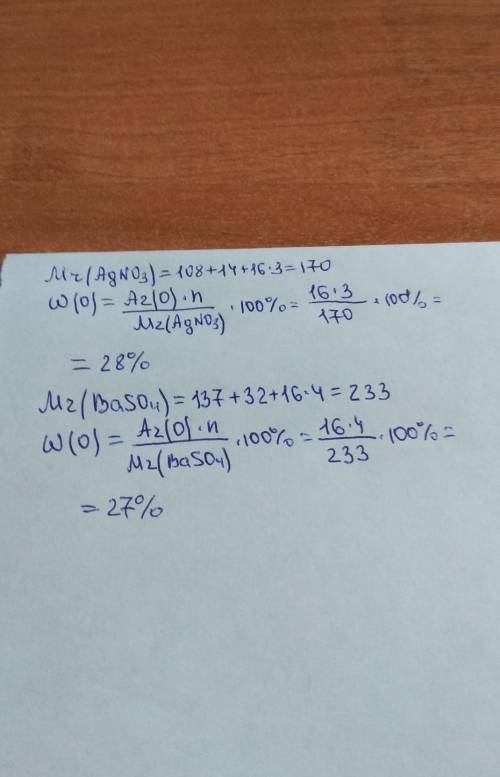 Mr(AgNO₃)=108+14+16·3=170
ω(O)= Ar(O)·n / Mr(AgNO₃) ·100%= 16·3 / 170 ·100%=
= 28%
Mr(BaSO₄)=137+32+16·4=233
ω(O)= Ar(O)·n / Mr(BaSO₄) ·100%= 16·4 / 233 ·100%=
= 27%